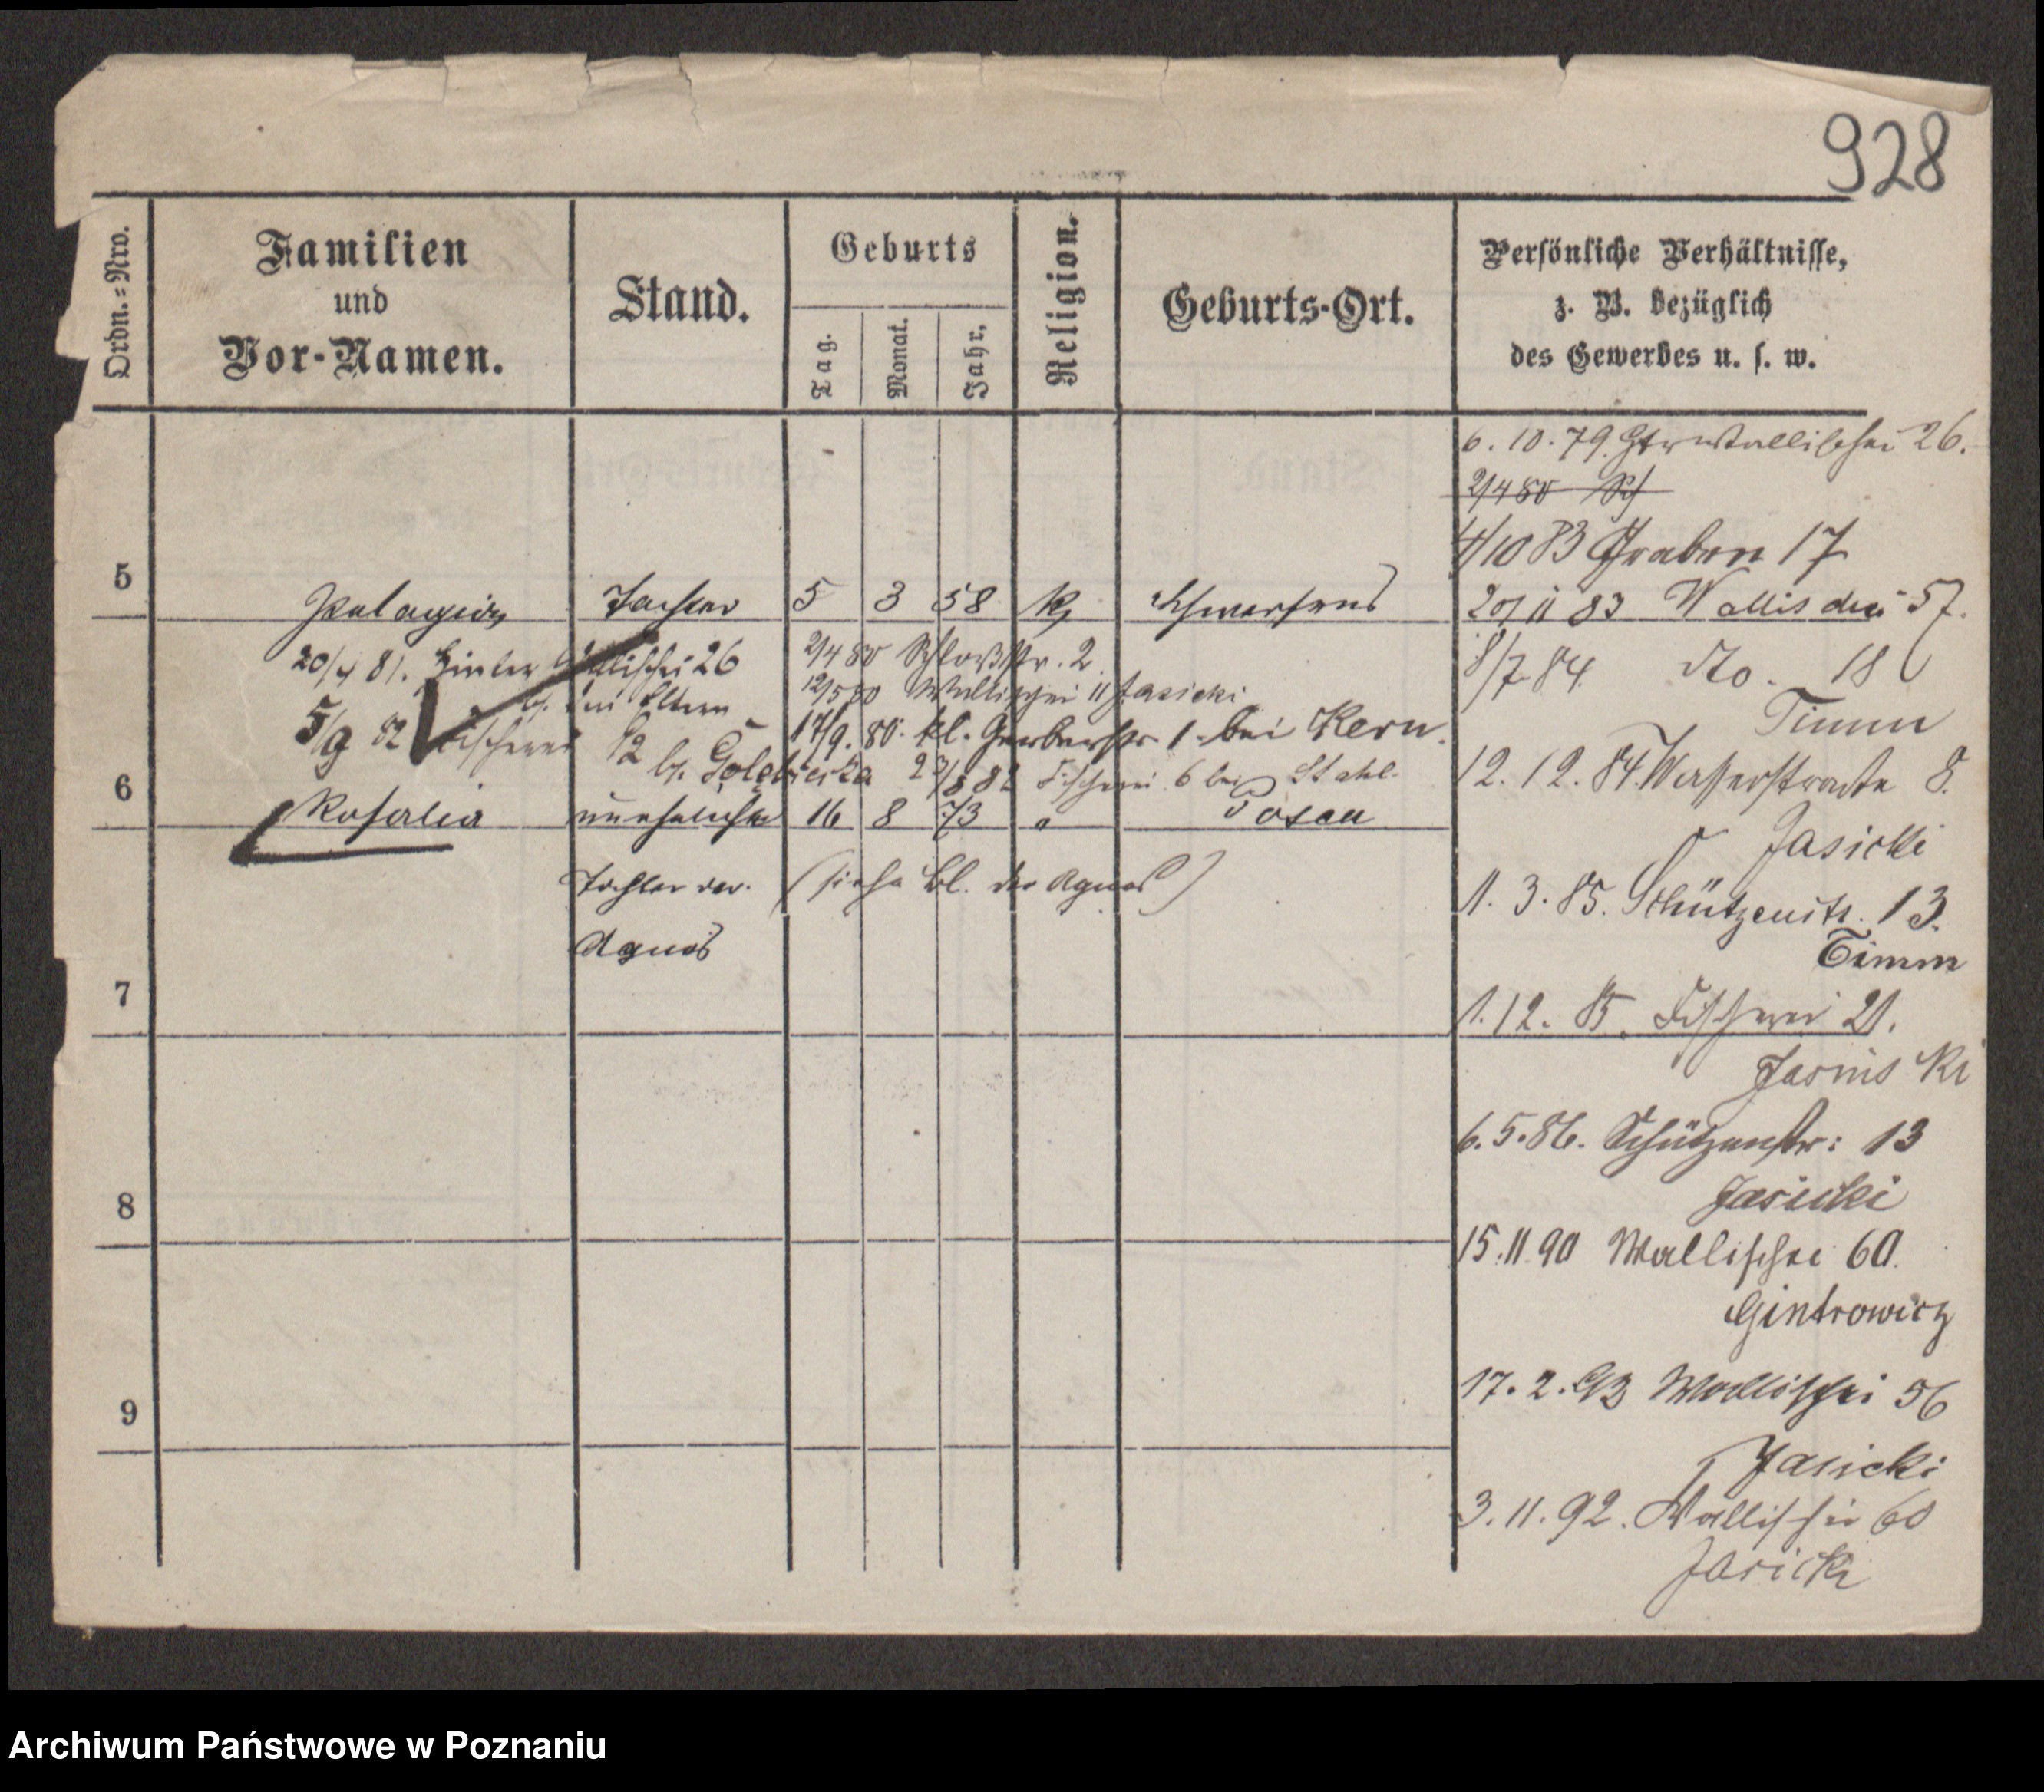 928
Ordn.=Nro.
Familien
und
Vor-Namen.
Stand.
Geburts
Tag.
Monat.
Jahr.
Religion.
Geburts-Ort.
Persönliche Verhältnisse,
z. B. bezüglich
des Gewerbes u. s. w.
6. 10. 79. Wallischei 26.
2/4 80
4/10 83 Graben 17
5
Pelagia Tochter 5 3 58 K Schwersenz
20/11 83 Wallischei 57.
20/4 81. Hinter Wallischei 26
bei den Eltern
2/4 80 Schloßstr. 2
12/5 80 Wallischei 11 Jasicki
17/9. 80. kl. Gerberstr. 1 bei Kern.
5/9 82 Fischerei 12 b. Golębieska
23/8 82 Fischerei 6 bei Stahl.
8/7 84. dto. 18
Timm
12. 12. 84. Wasserstraße 8.
Jasicki
6
Rosalia uneheliche 16 8 73 " Posen
Tochter der (siehe Bl. der Agnes)
Agnes
11. 3. 85. Schützenstr. 13.
Timm
7
1. 12. 85. Fischerei 21.
6. 5. 86. Schützenstr: 13
Jasicki
8
15. 11 90 Wallischei 60.
Gintrowicz
9
17. 2. 92 Wallischei 56
Jasicki
3. 11. 92. Wallischei 60
Jasicki
Archiwum Państwowe w Poznaniu